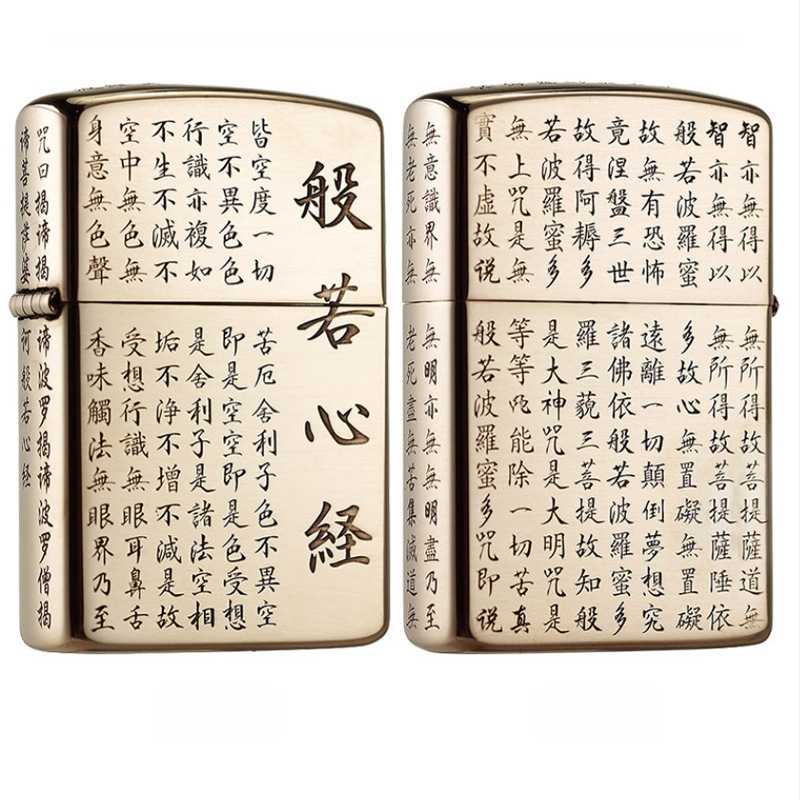 般若心経
皆空度一切苦厄舍利子色不異空
空不異色色即是空空即是色受想
行識亦複如是舍利子是諸法空相
不生不滅不垢不浄不增不減是故
空中無色無受想行識無眼耳鼻舌
身意無色聲香味觸法無眼界乃至
咒曰揭諦揭諦波罗揭諦波罗僧揭
諦菩提萨婆何般若心経
智亦無得以無所得故菩提薩道無
智亦無得以無所得故菩提薩睡依
般若波羅蜜多故心無置礙無置礙
故無有恐怖遠離一切顛倒夢想究
竟涅盤三世諸佛依般若波羅蜜多
故得阿耨多羅三藐三菩提故知般
若波羅蜜多是大神咒是大明咒是
無上咒是無等等咒能除一切苦真
實不虛故说般若波羅蜜多咒即说
無意識界無無明亦無無明盡乃至
無老死亦無老死盡無苦集滅道無